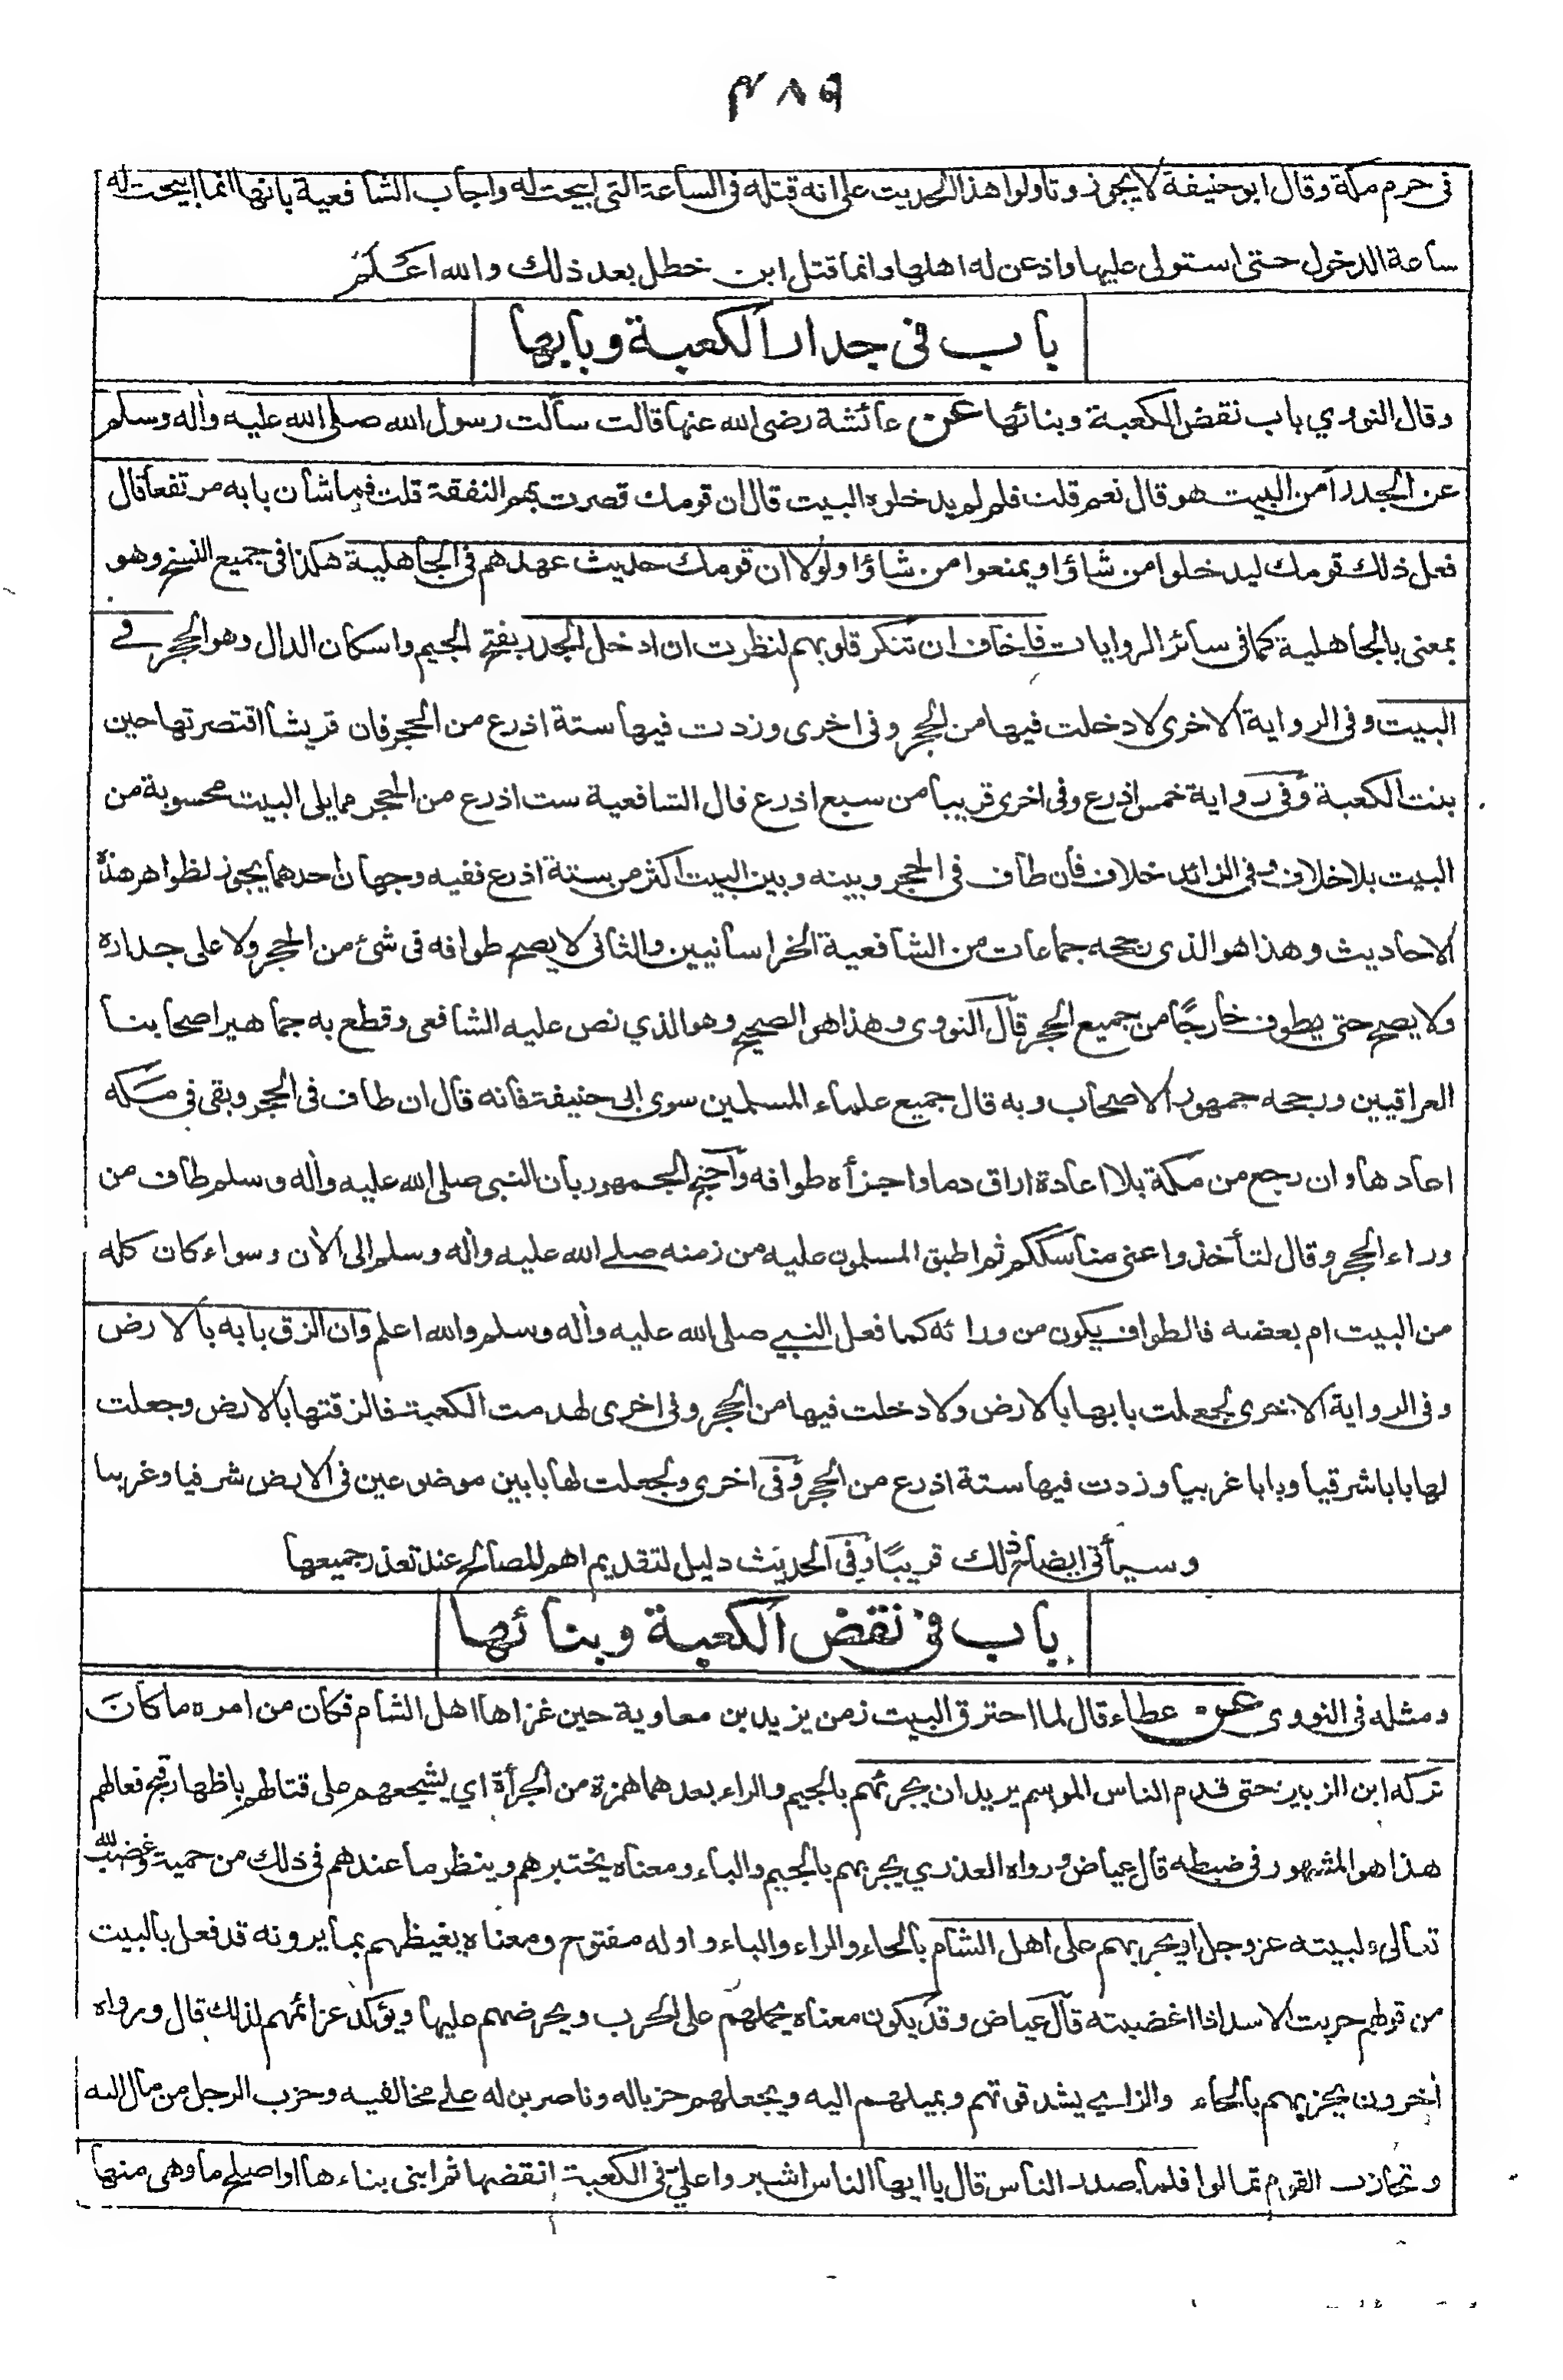 ٤٨٩
فى حرم مكة وقال ابو حنيفة لا يجوز وتاولوا هذا الحديث على انه قتله فى الساعة التى ابيحت له واجاب الشافعية بانها انما ابيحت له
ساعة الدخول حتى استولى عليها واذعن له اهلها وانما قتل ابن خطل بعد ذلك والله اعلم
باب فى جدار الكعبة وبابها
وقال النووي باب نقض الكعبة وبنائها عن عائشة رضى الله عنها قالت سألت رسول الله صلى الله عليه واله وسلم
عن الجدر أمن البيت هو قال نعم قلت فلم لم يدخلوه البيت قال ان قومك قصرت بهم النفقة قلت فما شأن بابه مرتفعا قال
فعل ذلك قومك ليدخلوا من شاؤا ويمنعوا من شاؤا ولولا ان قومك حديث عهدهم فى الجاهلية هكذا فى جميع النسخ وهو
بمعنى بالجاهلية كما فى سائر الروايات فاخاف ان تنكر قلوبهم لنظرت ان ادخل الجدر بفتح الجيم واسكان الدال وهو الحجر فے
البيت وفى الرواية الاخرى لادخلت فيها من الحجر وفى اخرى وزدت فيها ستة اذرع من الحجر فان قريشا اقتصرتها حين
بنت الكعبة وفى رواية خمس اذرع وفى اخرى قريبا من سبع اذرع قال الشافعية ست اذرع من الحجر مما يلى البيت محسوبة من
البيت بلا خلاف وفى الزائد خلاف فان طاف فى الحجر وبينه وبين البيت اكثر من ستة اذرع ففيه وجهان احدهما يجوز لظواهر هذه
الاحاديث وهذا هو الذى رجحه جماعات من الشافعية الخراسانيين والثانى لا يصح طوافه فى شئ من الحجر ولا على جداره
ولا يصح حتى يطوف خارجًا من جميع الحجر قال النووى وهذا هو الصحيح وهو الذي نص عليه الشافعى وقطع به جماهير اصحابنا
العراقيين ورجحه جمهور الاصحاب وبه قال جميع علماء المسلمين سوى ابى حنيفة فانه قال ان طاف فى الحجر وبقى فى مكه
اعادها وان رجع من مكة بلا اعادة اراق دما واجزأه طوافه واحتج الجمهور بان النبى صلى الله عليه واله وسلم طاف من
وراء الحجر وقال لتأخذوا عنى مناسككم ثم اطبق المسلمون عليه من زمنه صلے الله عليه واله وسلم الى الأن وسواء كان كله
من البيت ام بعضه فالطواف يكون من ورائه كما فعل النبي صلى الله عليه واله وسلم والله اعلم وان الزق بابه بالارض
وفى الرواية الاخرى لجعلت بابها بالارض ولادخلت فيها من الحجر وفى اخرى لهدمت الكعبة فالزقتها بالارض وجعلت
لها بابا شرقيا وبابا غربيا وزدت فيها ستة اذرع من الحجر وفى اخرى ولجعلت لها بابين موضوعين فى الارض شرقيا وغربيا
وسيأتى ايضاح ذلك قريبًا وفى الحديث دليل لتقديم اهم المصالح عند تعذر جميعها
باب فى نقض الكعبة وبنائها
ومثله فى النووى عن عطاء قال لما احترق البيت زمن يزيد بن معاوية حين غزاها اهل الشام فكان من امره ما كان
تركه ابن الزبير حتى قدم الناس الموسم يريد ان يجرئهم بالجيم والراء بعدهما همزة من الجرأة اي يشجعهم على قتالهم باظهار قبح فعالهم
هذا هو المشهور فى ضبطه قال عياض ورواه العذري يجربهم بالجيم والباء ومعناه يختبرهم وينظر ما عندهم فى ذلك من حمية وغضب لله
تعالى ولبيته عز وجل او يحربهم على اهل الشام بالحاء والراء والباء واوله مفتوح ومعناه يغيظهم بما يرونه قد فعل بالبيت
من قولهم حربت الاسد اذا اغضبته قال عياض وقد يكون معناه يحملهم على الحرب ويحرضهم عليها ويؤكد عزائمهم لذلك قال ورواه
أخرون يحزبهم بالحاء والزاے يشد قوتهم ويميلهم اليه ويجعلهم حزبا له وناصرين له علے مخالفيه وحزب الرجل من مال اليه
وتحازب القوم تمالوا فلما صدر الناس قال يا ايها الناس اشيروا علىّ فى الكعبة انقضها ثم ابنى بناءها او اصلح ما وهى منها